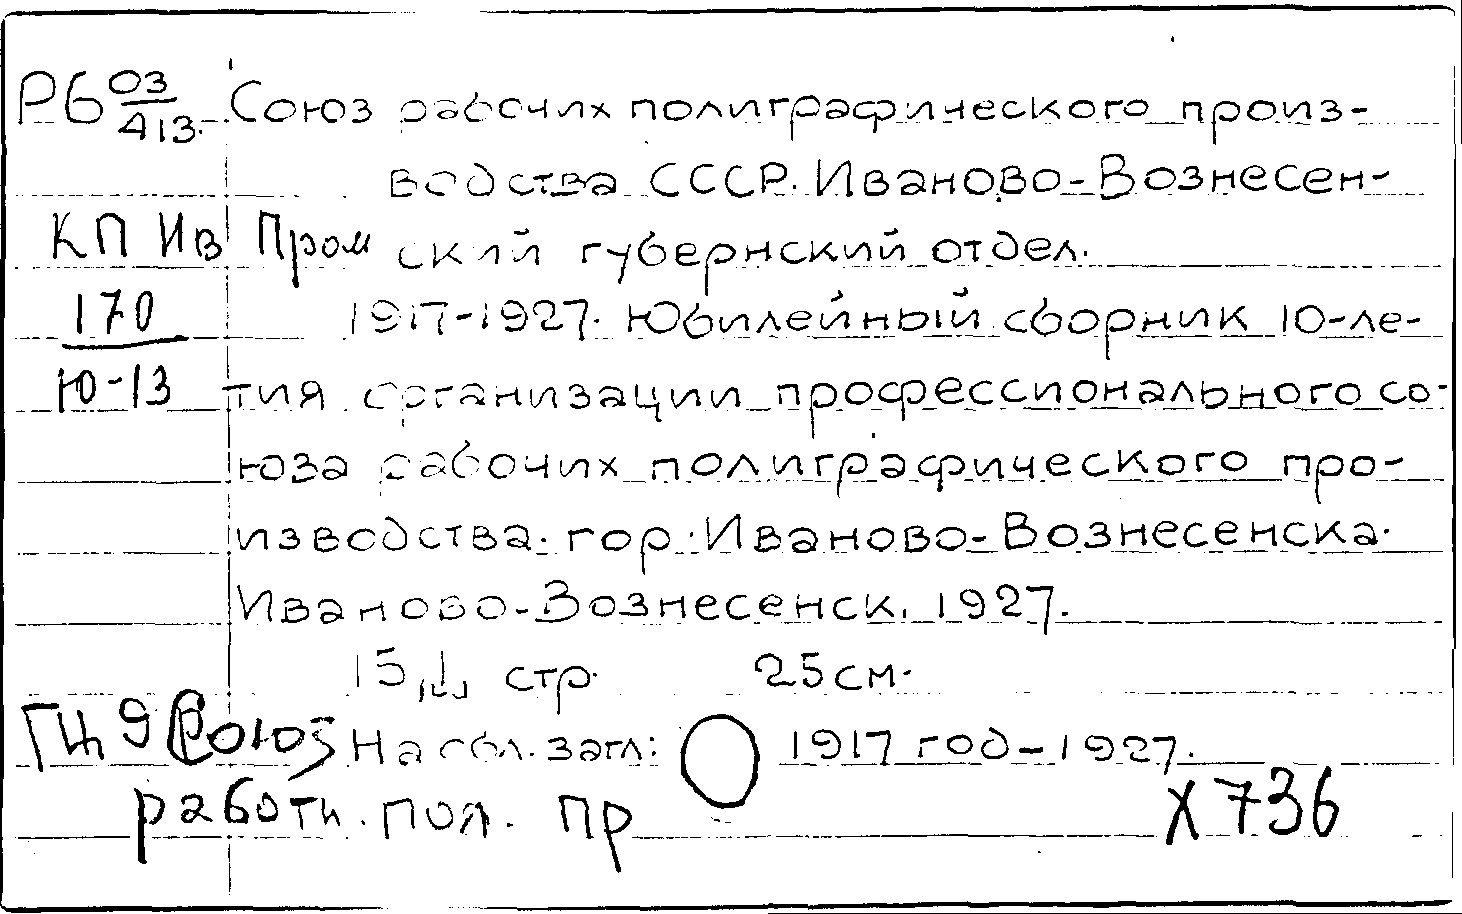 Рб 03/413. Союз рабочих полиграфического произ-
водства СССР. Иваново-Вознесен-
КП Ив Пром ский губернский отдел.
170 1917-1927. Юбилейный сборник 10-ле-
Ю-13 тия организации профессионального со-
юза рабочих полиграфического про-
изводства. гор. Иваново-Вознесенска.
Иваново-Вознесенск, 1927.
15, стр. 25 см.
9 Союз На обл. загл: 1917 год-1927.
пол. пр Х736